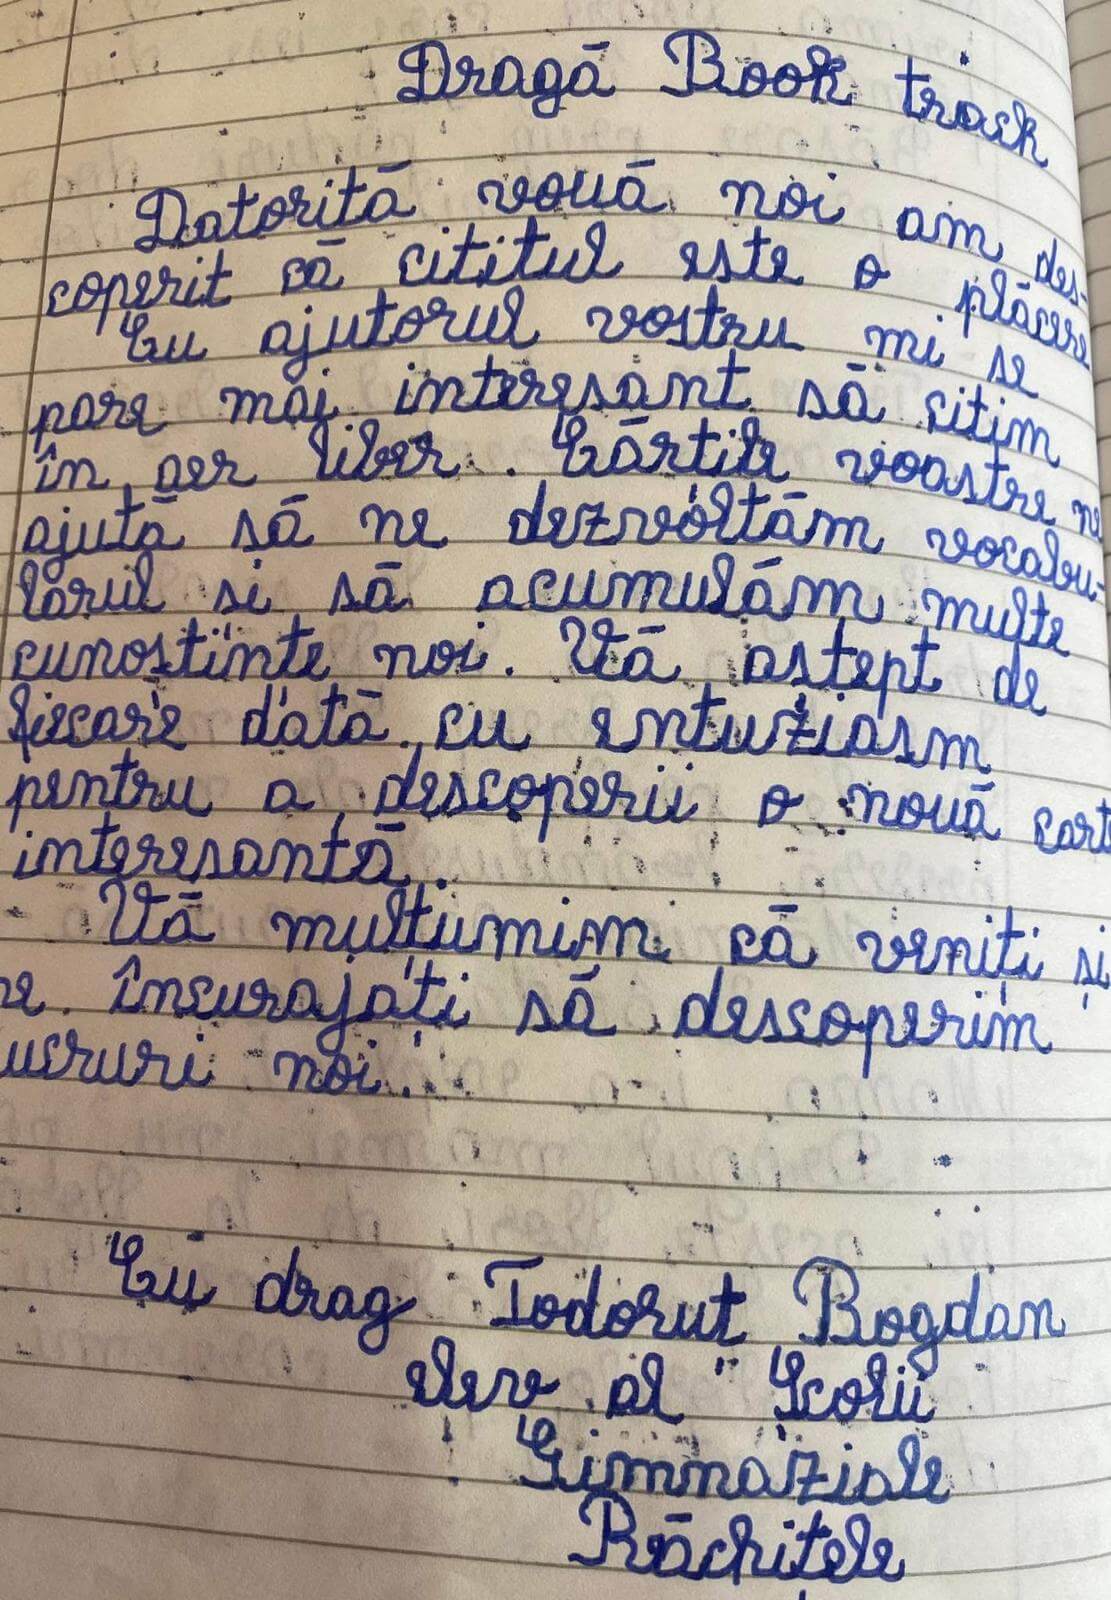 Dragă Book track
Datorită vouă noi am des-
coperit că cititul este o plăcere
Cu ajutorul vostru mi se
pare mai interesant să citim
în aer liber. Cărtile voastre ne
ajută să ne dezvoltăm vocabu-
larul si să acumulăm multe
cunostinte noi. Vă astept de
fiecare dată cu entuziasm
pentru a descoperii o nouă cart
interesantă.
Vă multumim că veniți și
ne încurajati să descoperim
ucruri noi.
Cu drag Todorut Bogdan
elev al Scolii
Gimnaziale
Răchitele